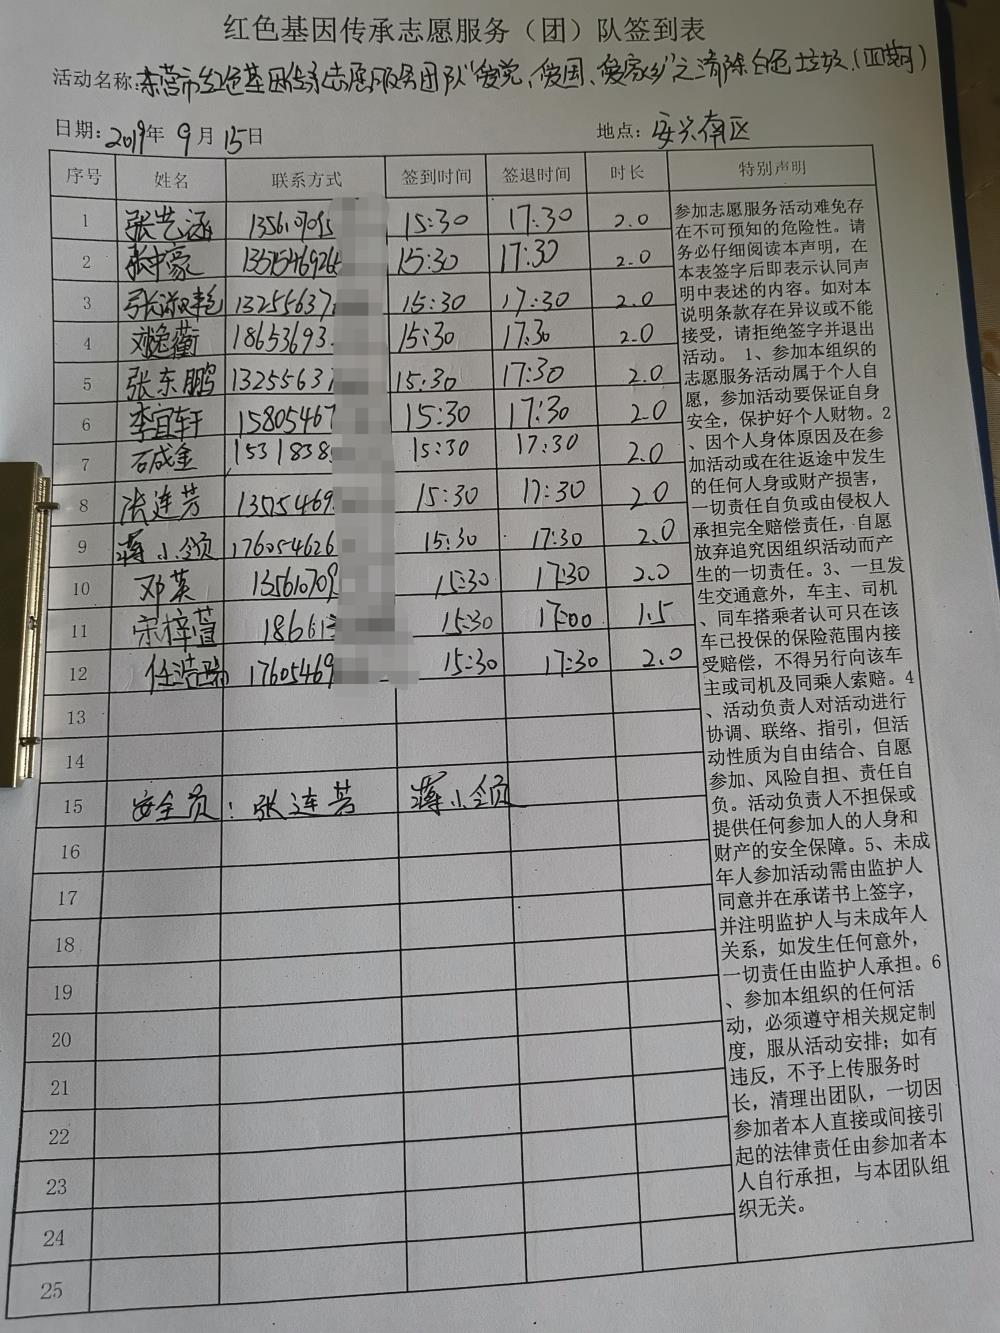 红色基因传承志愿服务（团）队签到表
活动名称:东营市红色基因传承志愿服务团队"爱党、爱国、爱家乡"之清除白色垃圾.(四期)
日期: 2019年 9月 15日 地点: 安兴南区
序号 姓名 联系方式 签到时间 签退时间 时长 特别声明
1 张艺涵 135610709 15:30 17:30 2.0
2 张中豪 1351546926 15:30 17:30 2.0
3 张淑艳 13255637 15:30 17:30 2.0
4 刘逸蘅 18653693 15:30 17:30 2.0
5 张东鹏 13255637 15:30 17:30 2.0
6 李宜轩 15805467 15:30 17:30 2.0
7 石成金 15318385 15:30 17:30 2.0
8 张连芳 13754469 15:30 17:30 2.0
9 蒋小领 176054626 15:30 17:30 2.0
10 邓英 135610709 15:30 17:30 2.0
11 宋梓萱 18661 15:30 17:00 1.5
12 任浩瑞 17605469 15:30 17:30 2.0
13
14
15 安全员：张连芳 蒋小领
16
17
18
19
20
21
22
23
24
25
参加志愿服务活动难免存
在不可预知的危险性。请
务必仔细阅读本声明，在
本表签字后即表示认同声
明中表述的内容。如对本
说明条款存在异议或不能
接受，请拒绝签字并退出
活动。 1、参加本组织的
志愿服务活动属于个人自
愿，参加活动要保证自身
安全，保护好个人财物。2
、因个人身体原因及在参
加活动或在往返途中发生
的任何人身或财产损害，
一切责任自负或由侵权人
承担完全赔偿责任，自愿
放弃追究因组织活动而产
生的一切责任。3、一旦发
生交通意外，车主、司机
、同车搭乘者认可只在该
车已投保的保险范围内接
受赔偿，不得另行向该车
主或司机及同乘人索赔。4
、活动负责人对活动进行
协调、联络、指引，但活
动性质为自由结合、自愿
参加、风险自担、责任自
负。活动负责人不担保或
提供任何参加人的人身和
财产的安全保障。5、未成
年人参加活动需由监护人
同意并在承诺书上签字，
并注明监护人与未成年人
关系，如发生任何意外，
一切责任由监护人承担。6
、参加本组织的任何活
动，必须遵守相关规定制
度，服从活动安排；如有
违反，不予上传服务时
长，清理出团队，一切因
参加者本人直接或间接引
起的法律责任由参加者本
人自行承担，与本团队组
织无关。